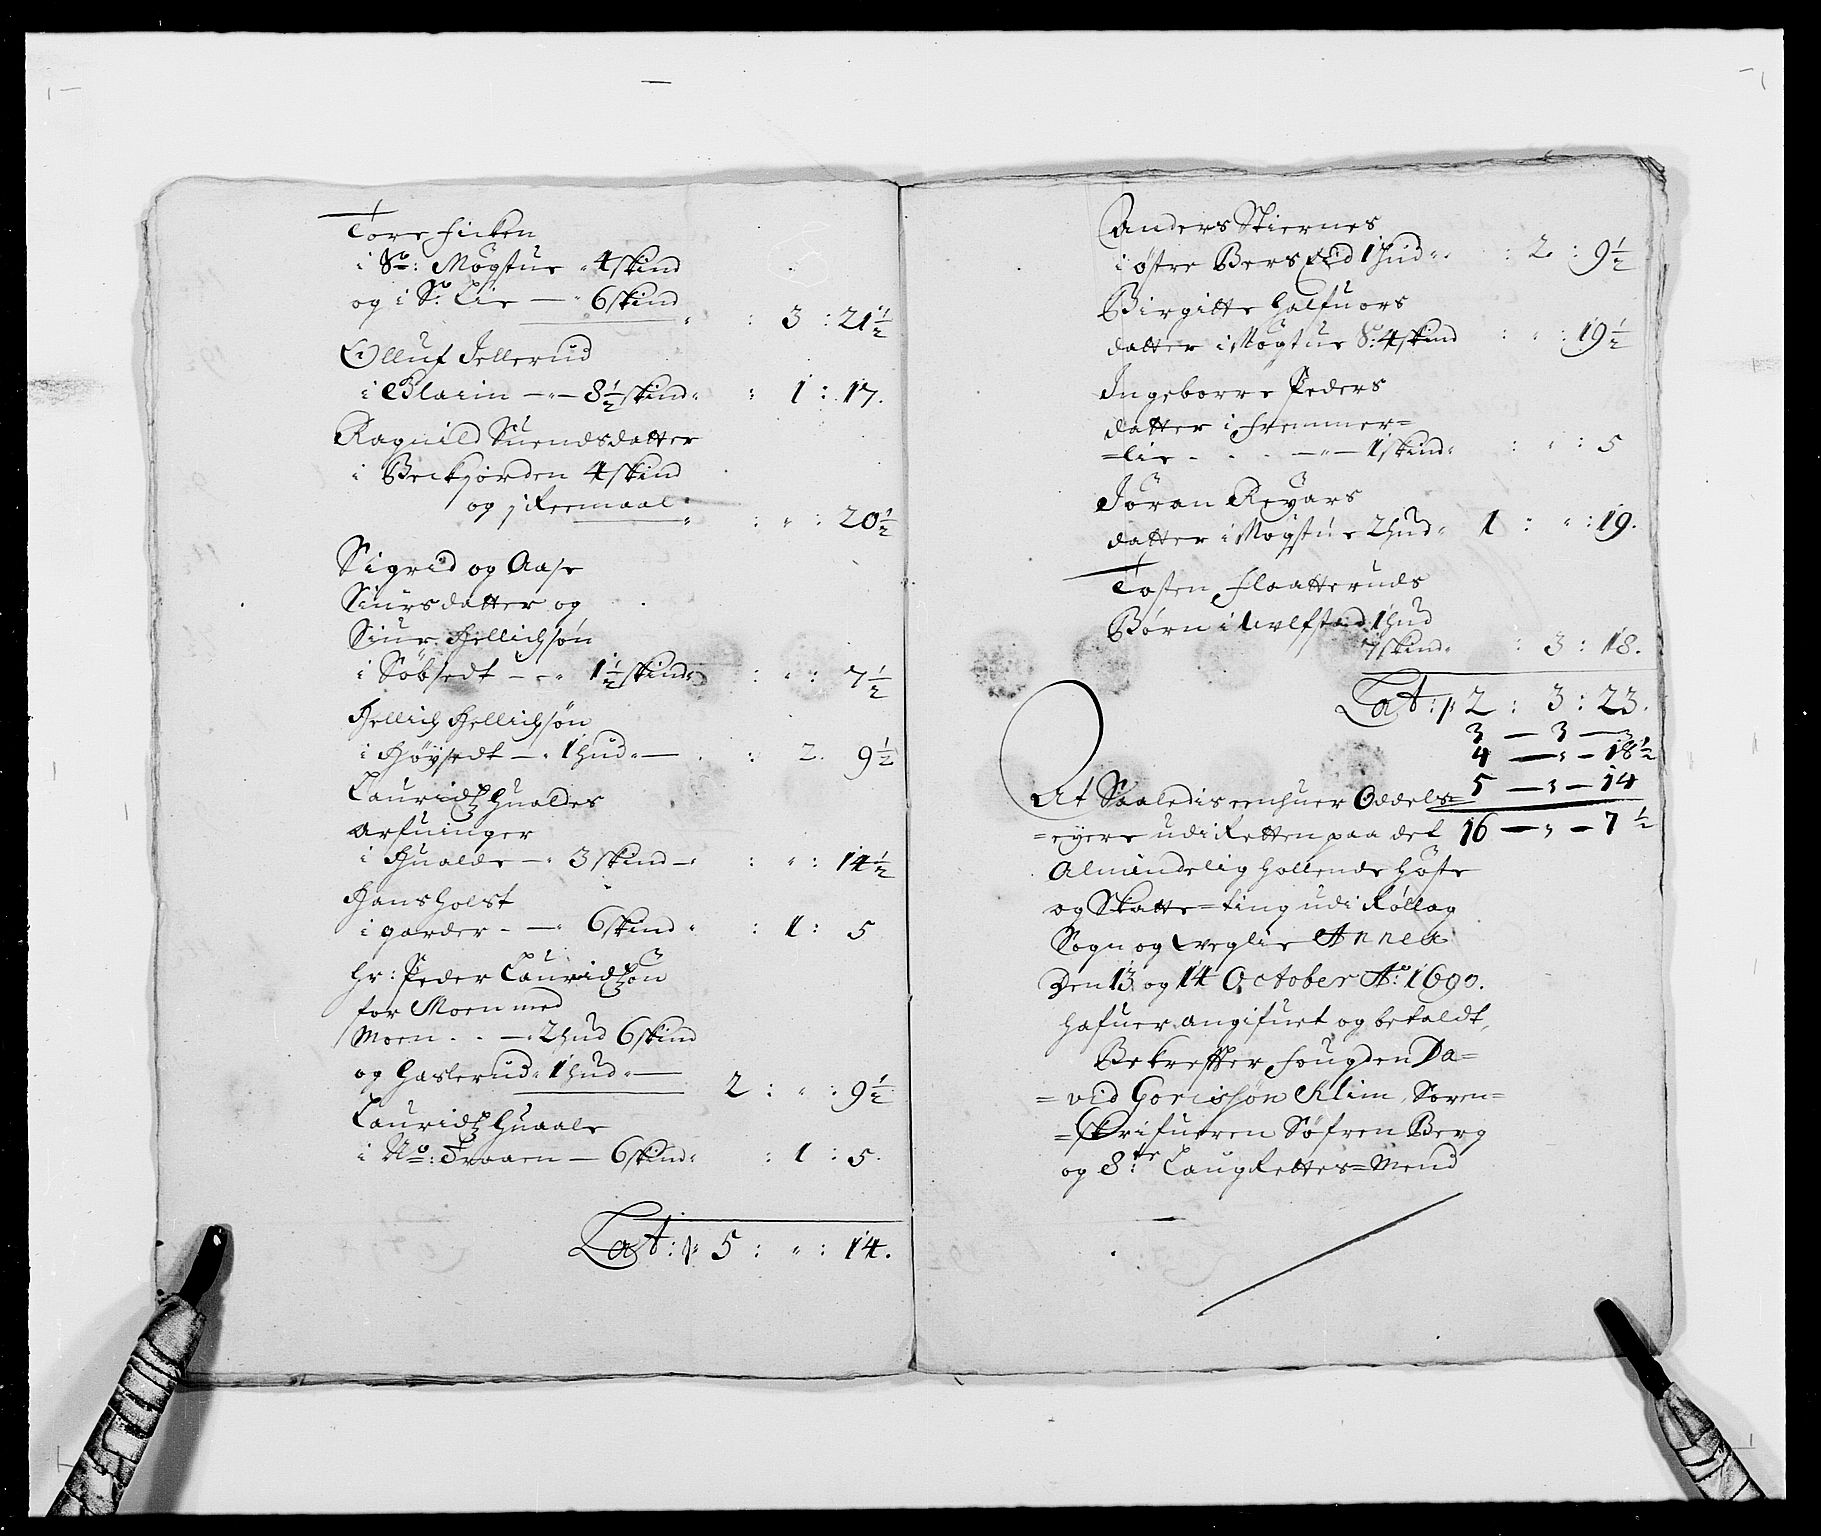 Tore Ficken
i Sø: Mogstue „ 4 skind
og i S: Lie — „ 6 skind
„ : 3 : 21 1/2
Olluf Jellerud
i Blaein — „ — 8 1/2 skind „ „ 1 : 17.
Ragnild Suendsdatter
i Beckjorden 4 skind
og
„ : „ : 20 1/2
Sigrid og Aase
Siursdatter og
Siur Hellichsøn
i Söbsedt — „ 1 1/2 skind „ : „ : 7 1/2
Hellich Hellichsøn
i Høysedt — „ 1 hud „ — : 2. 9 1/2
Lauridtz Hualdes
arfuinger
i Hualde — „ 3 skind — „ : „ : 14 1/2
Hans Holst
i garder - — „ 6 skind „ : 1 : 5
hr: Peder Lauridtzøn
for Moen med
Moen . . — „ 2 hud 6 skind
og Haslerud „ 1 hud „ — 2 : „ : 9 1/2
Lauridtz Huaale
i No: Traaen — 6 skind „ : 1 : 5.
Lat: p 5 : „ : 14.
Anders Skiernes
i østre Bersvid 1 hud „ . : 2 : 9 1/2
Birgitte Halfuors
datter i Mogtue S: 4 skind : „ : 19 1/2
Ingeborre Peders
datter i Fremmer=
=lie - . . — „ — 1 skind „ : „ : 5
Jøran Reyars
datter i Mogstue 2 hud „ 1 : „ : 19.
Tosten Flaatteruds
Børn i Ulfstad 1 hud
7 skind „ : 3 : 18.
Lat: p 2 : 3 : 23.
3 — 3 — 3
4 — „ — 18 1/2
5 — „ — 14
At Saaledis eenhuer Oddels=
=eyere udi Retten paa det 16 — „ — 7 1/2
Almindelig hollende Høste
og Skatte=ting udi Rollag
Sogn og Weglie Annex
Den 13 og 14 October Ao: 1690.
hafuer angifuet og betaldt,
Bekreffter fougden Da=
=vid Gorissøn Klim, Soren=
=skrifueren Søfren Berg
og 8:te Laug Rettes=Mend